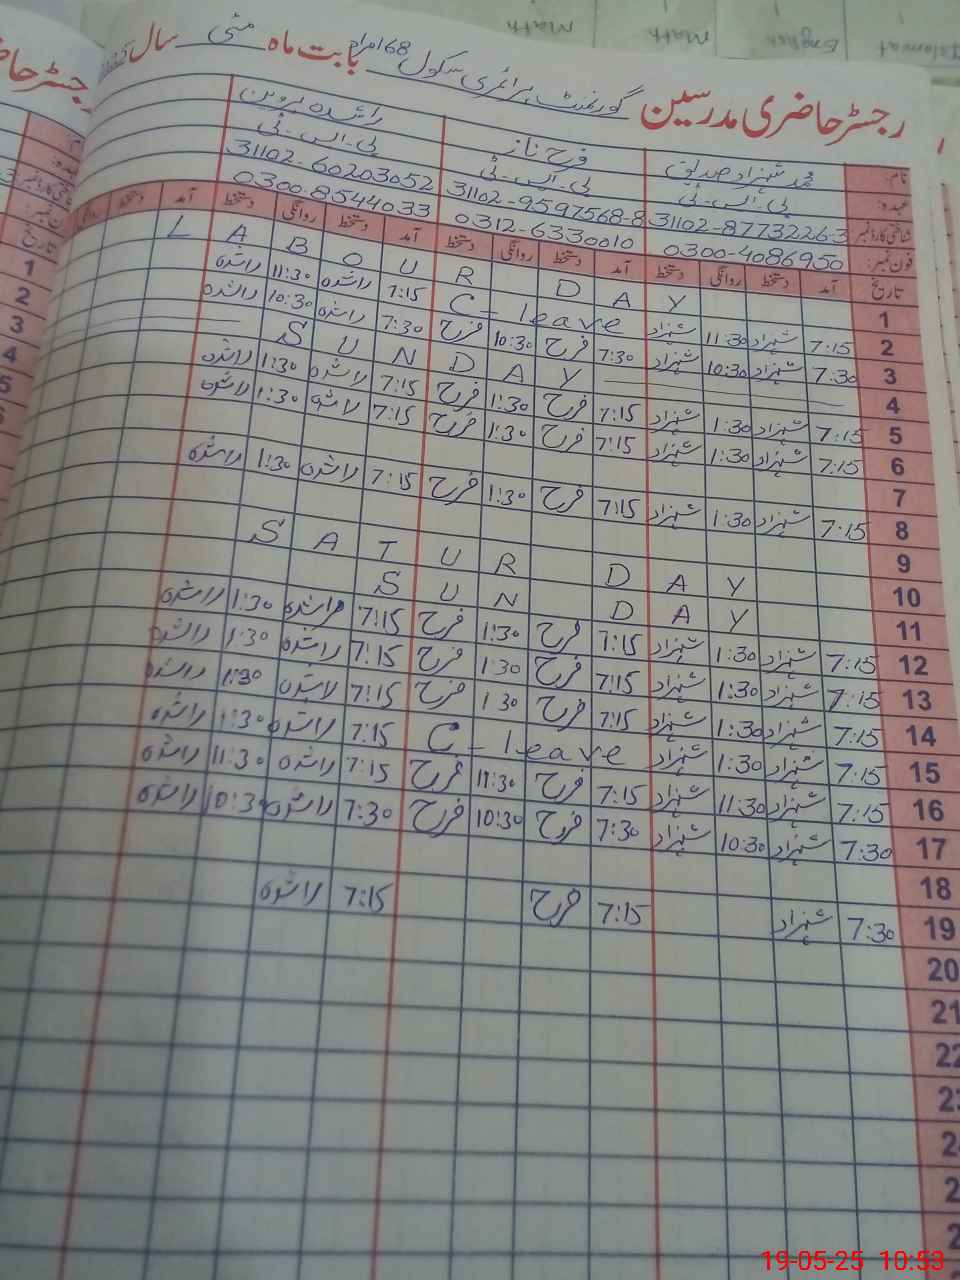 Math Math English
رجسٹر حاضری مدرسین گورنمنٹ پرائمری سکول 168مراد بابت ماہ مئی سال
نام: محمد شہزاد صدیق فرح ناز راشدہ پروین
عہدہ: پی-ایس-ٹی پی-ایس-ٹی پی-ایس-ٹی
شناختی کارڈ نمبر 31102-8773226-3 31102-9597568-8 31102-60203052
فون نمبر: 0300-4086950 0312-6330010 0300-8544033
تاریخ آمد دستخط روانگی دستخط آمد دستخط روانگی دستخط آمد دستخط روانگی دستخط آمد دستخط روانگی
1 L A B O U R D A Y
2 7:15 شہزاد 11:30 شہزاد C-leave 7:15 راشدہ 11:30 راشدہ
3 7:30 شہزاد 10:30 شہزاد 7:30 فرح 10:30 فرح 7:30 راشدہ 10:30 راشدہ
4 S U N D A Y
5 7:15 شہزاد 1:30 شہزاد 7:15 فرح 1:30 فرح 7:15 راشدہ 1:30 راشدہ
6 7:15 شہزاد 1:30 شہزاد 7:15 فرح 1:30 فرح 7:15 راشدہ 1:30 راشدہ
7
8 7:15 شہزاد 1:30 شہزاد 7:15 فرح 1:30 فرح 7:15 راشدہ 1:30 راشدہ
9
10 S A T U R D A Y
11 S U N D A Y
12 7:15 شہزاد 1:30 شہزاد 7:15 فرح 1:30 فرح 7:15 راشدہ 1:30 راشدہ
13 7:15 شہزاد 1:30 شہزاد 7:15 فرح 1:30 فرح 7:15 راشدہ 1:30 راشدہ
14 7:15 شہزاد 1:30 شہزاد 7:15 فرح 1 30 فرح 7:15 راشدہ 1:30 راشدہ
15 7:15 شہزاد 1:30 شہزاد C-leave 7:15 راشدہ 1:30 راشدہ
16 7:15 شہزاد 11:30 شہزاد 7:15 فرح 11:30 فرح 7:15 راشدہ 11:30 راشدہ
17 7:30 شہزاد 10:30 شہزاد 7:30 فرح 10:30 فرح 7:30 راشدہ 10:30 راشدہ
18
19 7:30 شہزاد 7:15 فرح 7:15 راشدہ
20
21
22
19-05-25 10:53